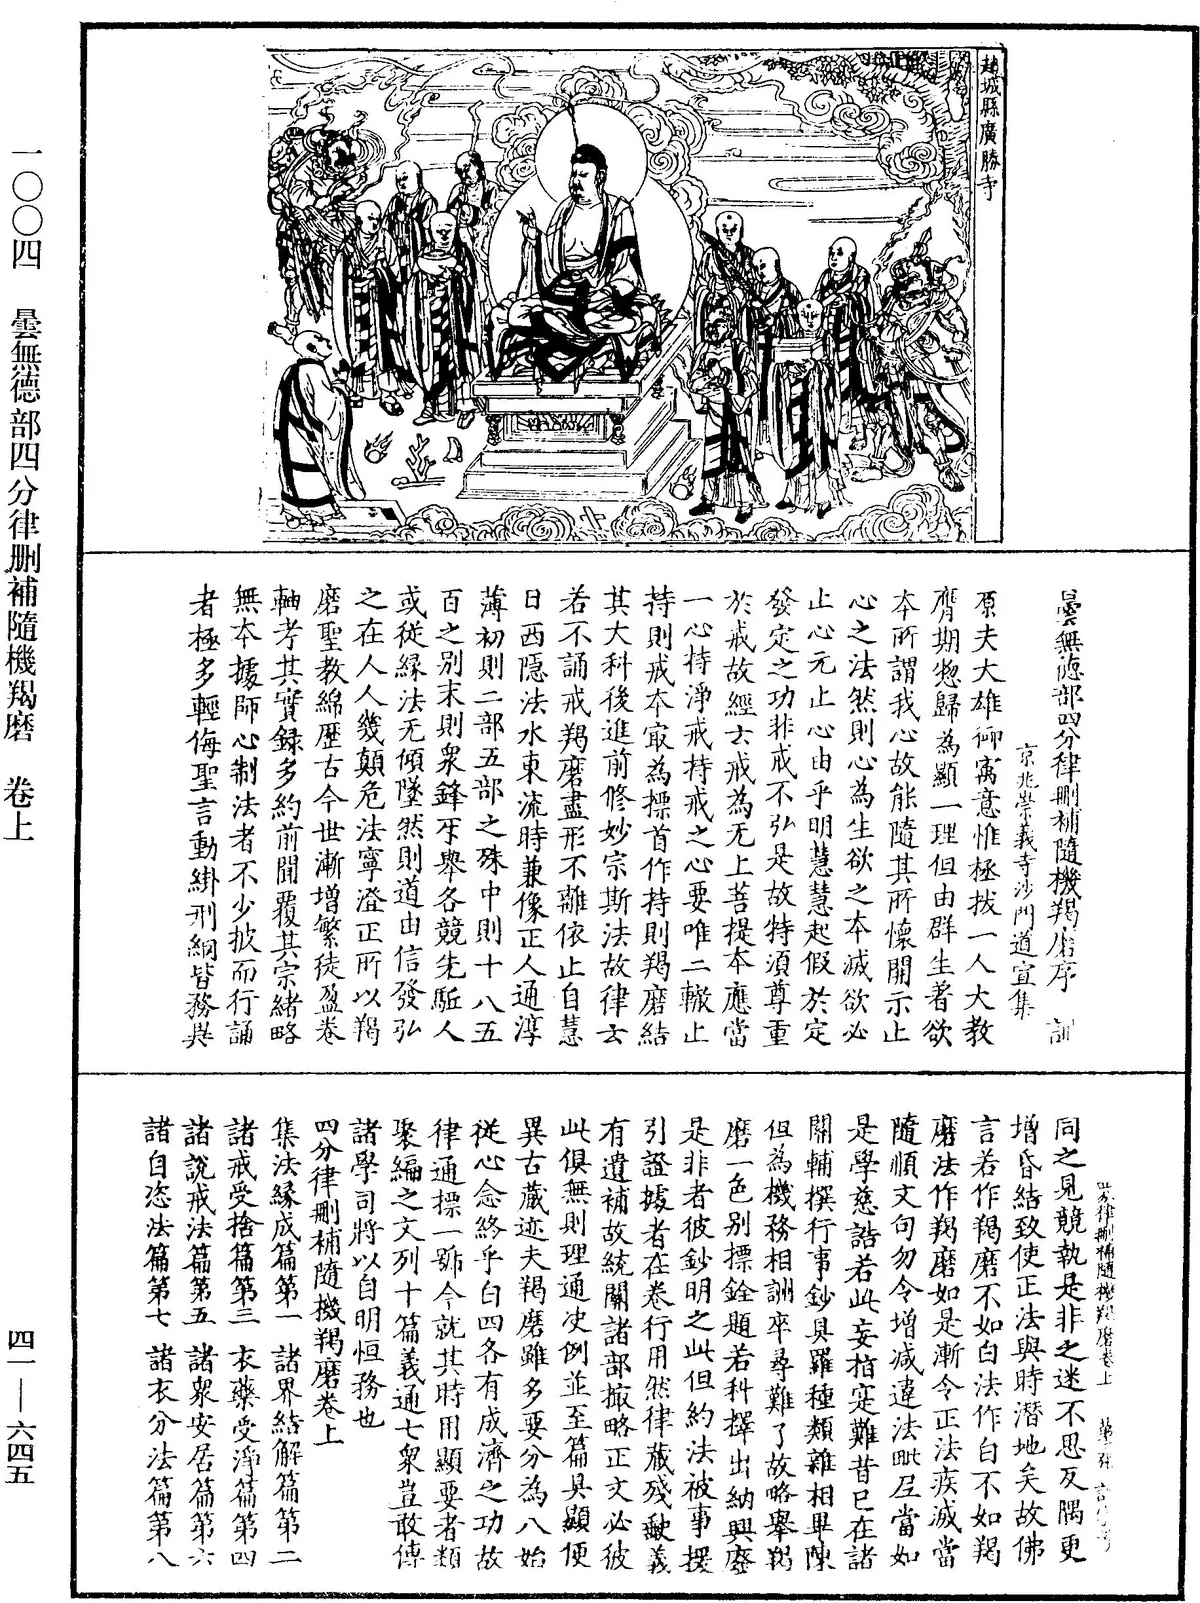 趙城縣廣勝寺
曇無德部四分律刪補隨機羯磨序 訓
京兆崇義寺沙門道宣集
原夫大雄御寓意惟極拔一人大教
膺期惣歸為顯一理但由群生著欲
本所謂我心故能隨其所懷開示止
心之法然則心為生欲之本滅欲必
止心元止心由乎明慧慧起假於定
發定之功非戒不弘是故特須尊重
於戒故經云戒為无上菩提本應當
一心持淨戒持戒之心要唯二轍止
持則戒本㝡為標首作持則羯磨結
其大科後進前修妙宗斯法故律云
若不誦戒羯磨盡形不離依止自慧
日西隱法水東流時兼像正人通淳
薄初則二部五部之殊中則十八五
百之別末則衆鋒牙舉各競先駈人
或從緣法无傾墜然則道由信發弘
之在人人幾顛危法寧澄正所以羯
磨聖教綿歷古今世漸增繁徒盈卷
軸考其實錄多約前聞覆其宗緒略
無本據師心制法者不少披而行誦
者極多輕侮聖言動掛刑綱皆務異
四分律刪補隨機羯磨卷上
同之見競執是非之迷不思反隅更
增昏結致使正法與時潛地矣故佛
言若作羯磨不如白法作白不如羯
磨法作羯磨如是漸令正法疾滅當
隨順文句勿令增減違法毗尼當如
是學慈誥若此妄指寔難昔已在諸
關輔撰行事鈔具羅種類雜相畢陳
但為機務相詶卒尋難了故略舉羯
磨一色別標銓題若科擇出納興廢
是非者彼鈔明之此但約法被事援
引證據者在卷行用然律藏殘缺義
有遺補故統關諸部撮略正文必彼
此俱無則理通决例並至篇具顯便
異古藏迹夫羯磨雖多要分為八始
從心念終乎白四各有成濟之功故
律通標一號今就其時用顯要者類
聚編之文列十篇義通七衆豈敢傳
諸學司將以自明恒務也
四分律刪補隨機羯磨卷上
集法緣成篇第一 諸界結解篇第二
諸戒受捨篇第三 衣藥受淨篇第四
諸說戒法篇第五 諸衆安居篇第六
諸自恣法篇第七 諸衣分法篇第八
一〇〇四 曇無德部四分律刪補隨機羯磨 卷上
四一——六四五